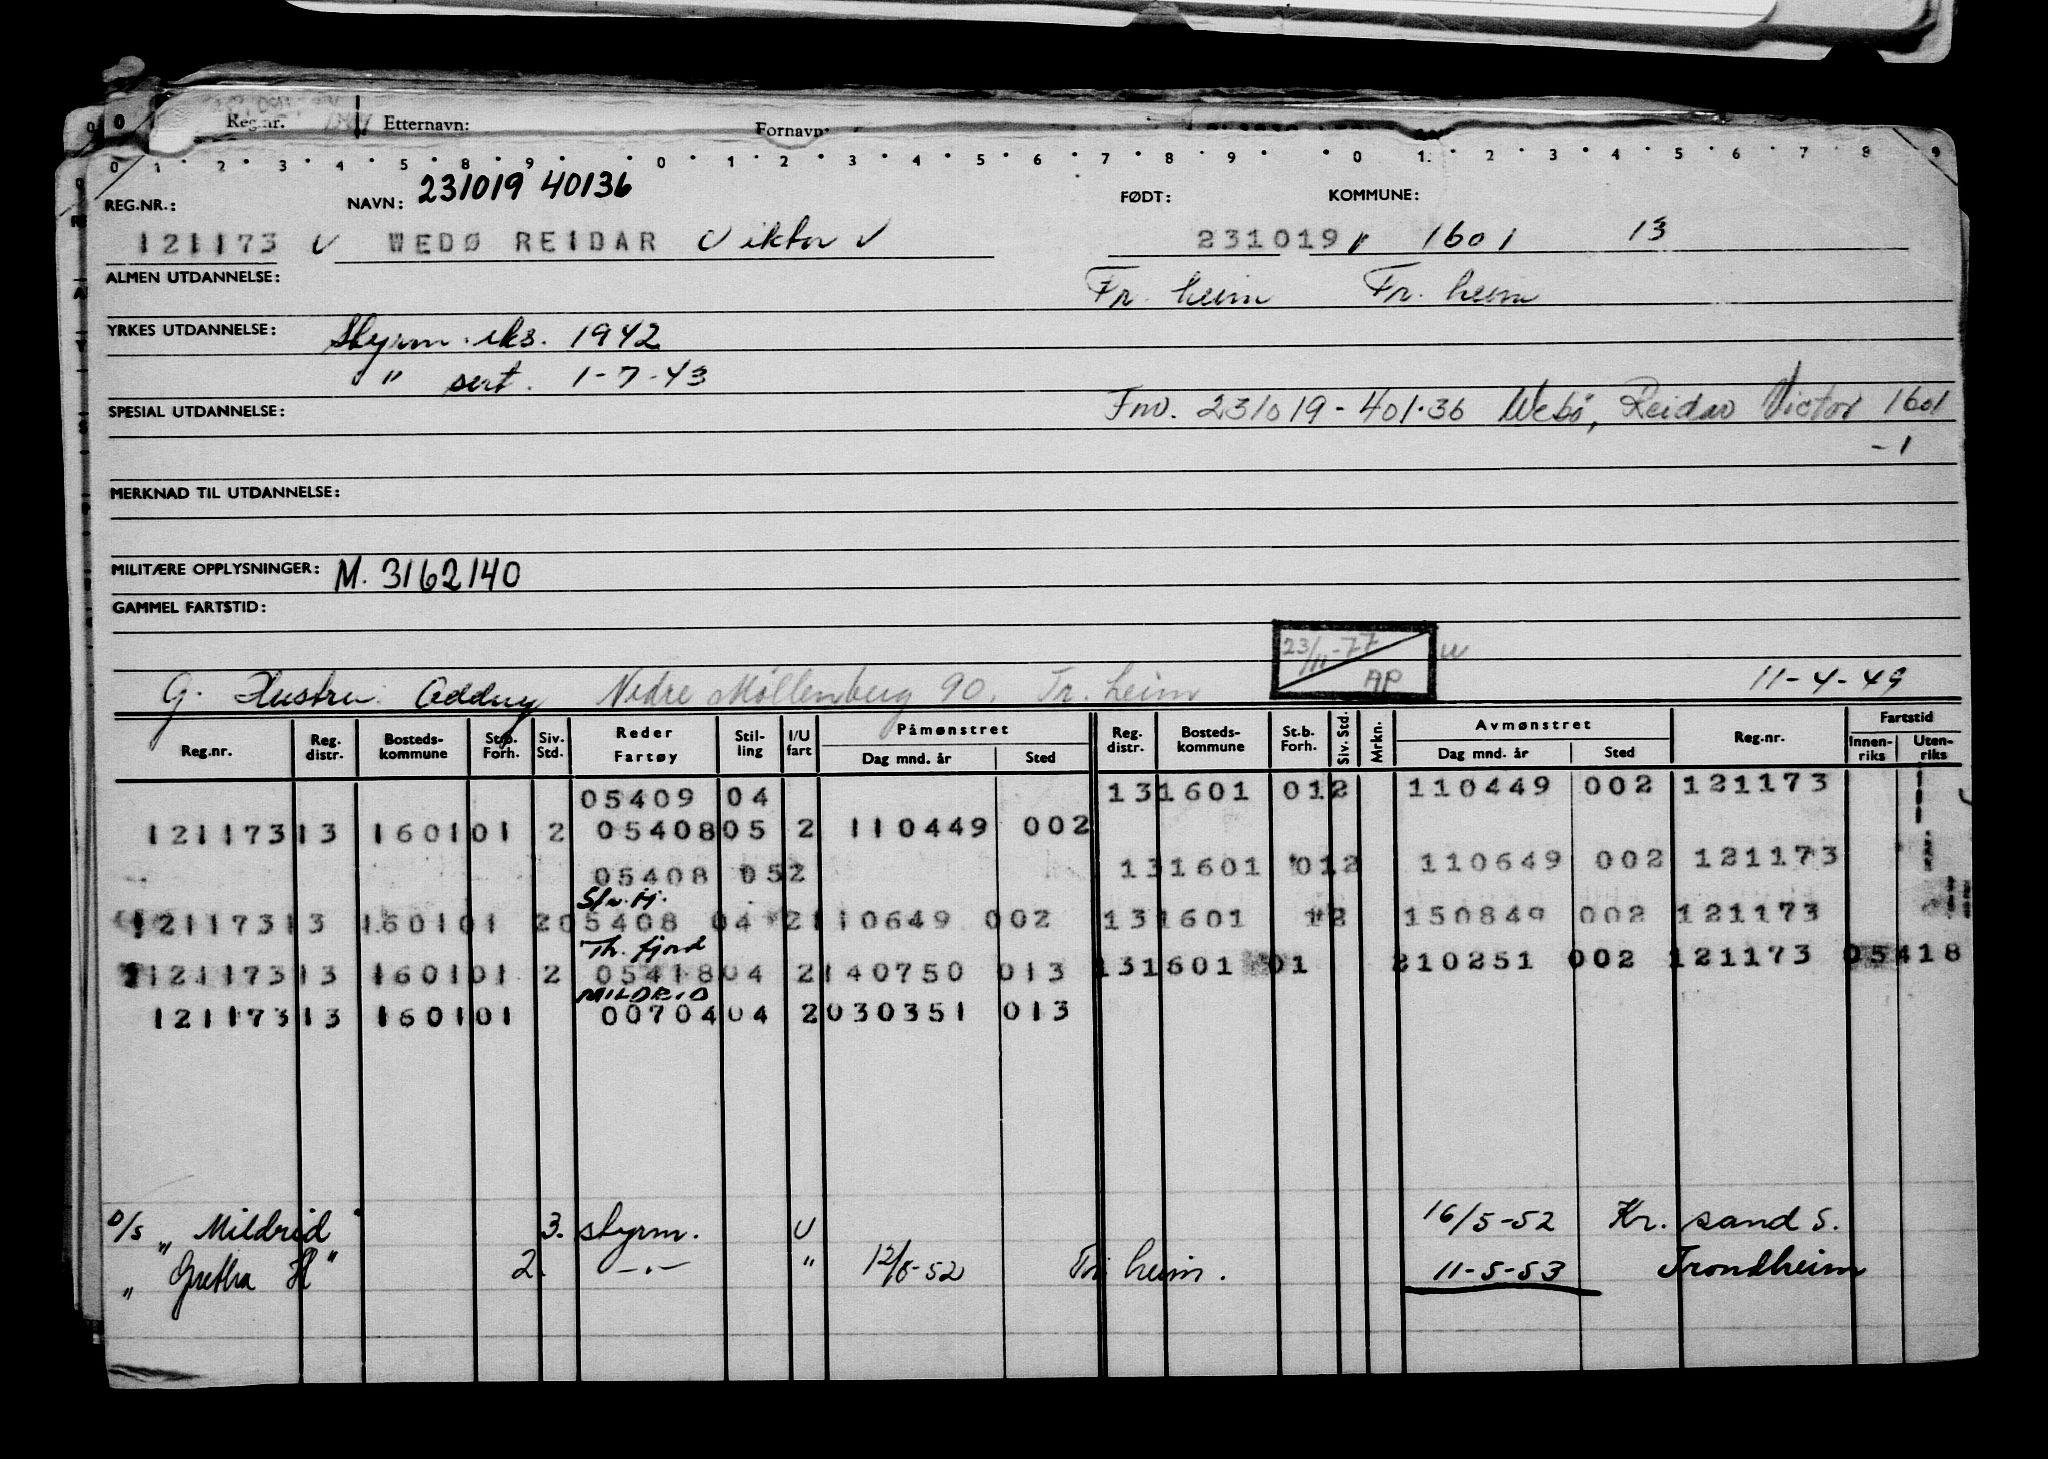 Reg.nr. Etternavn: Fornavn:
0 1 2 3 4 5 8 9 0 1 2 3 4 5 6 7 8 9 0 1 2 3 4 5 6 7 8 9
REG.NR.: NAVN: 231019 40136 FØDT: KOMMUNE:
121173 V WEDØ REIDAR Viktor V 231019 1601 13
ALMEN UTDANNELSE: Tr. heim Tr. heim
YRKES UTDANNELSE: Styrm. eks. 1942
" sert. 1-7-43
SPESIAL UTDANNELSE: Fnr. 231019-401.36 Webö, Reidar Victor 1601
-1
MERKNAD TIL UTDANNELSE:
MILITÆRE OPPLYSNINGER: M. 3162140
GAMMEL FARTSTID:
23/11-77 AP
G. Hustru Oddny Nedre Møllenberg 90. Tr. heim 11-4-49
Reg.nr. Reg. distr. Bosteds-kommune St.b. Forh. Siv. Std. Reder Fartøy Stil-ling I/U fart Påmønstret Dag mnd. år Sted Reg. distr. Bosteds-kommune St.b. Forh. Siv. Std. Mrkn. Avmønstret Dag mnd. år Sted Reg.nr. Fartstid Innen-riks Uten-riks
05409 04 131601 012 110449 002 121173
121173 13 1601 01 2 05408 05 2 110449 002
05408 052 131601 012 110649 002 121173
121173 13 1601 01 2 05408 04 2 110649 002 131601 12 150849 002 121173
Th. fjord
121173 13 1601 01 2 05418 04 2 140750 013 131601 01 210251 002 121173 05418
MILDRID
121173 13 1601 01 00704 04 2 030351 013
D/S "Mildrid" 3. styrm. U 16/5-52 Kr. sand S.
" Gretha H" 2. -"- " 12/8-52 Tr. heim. 11-5-53 Trondheim